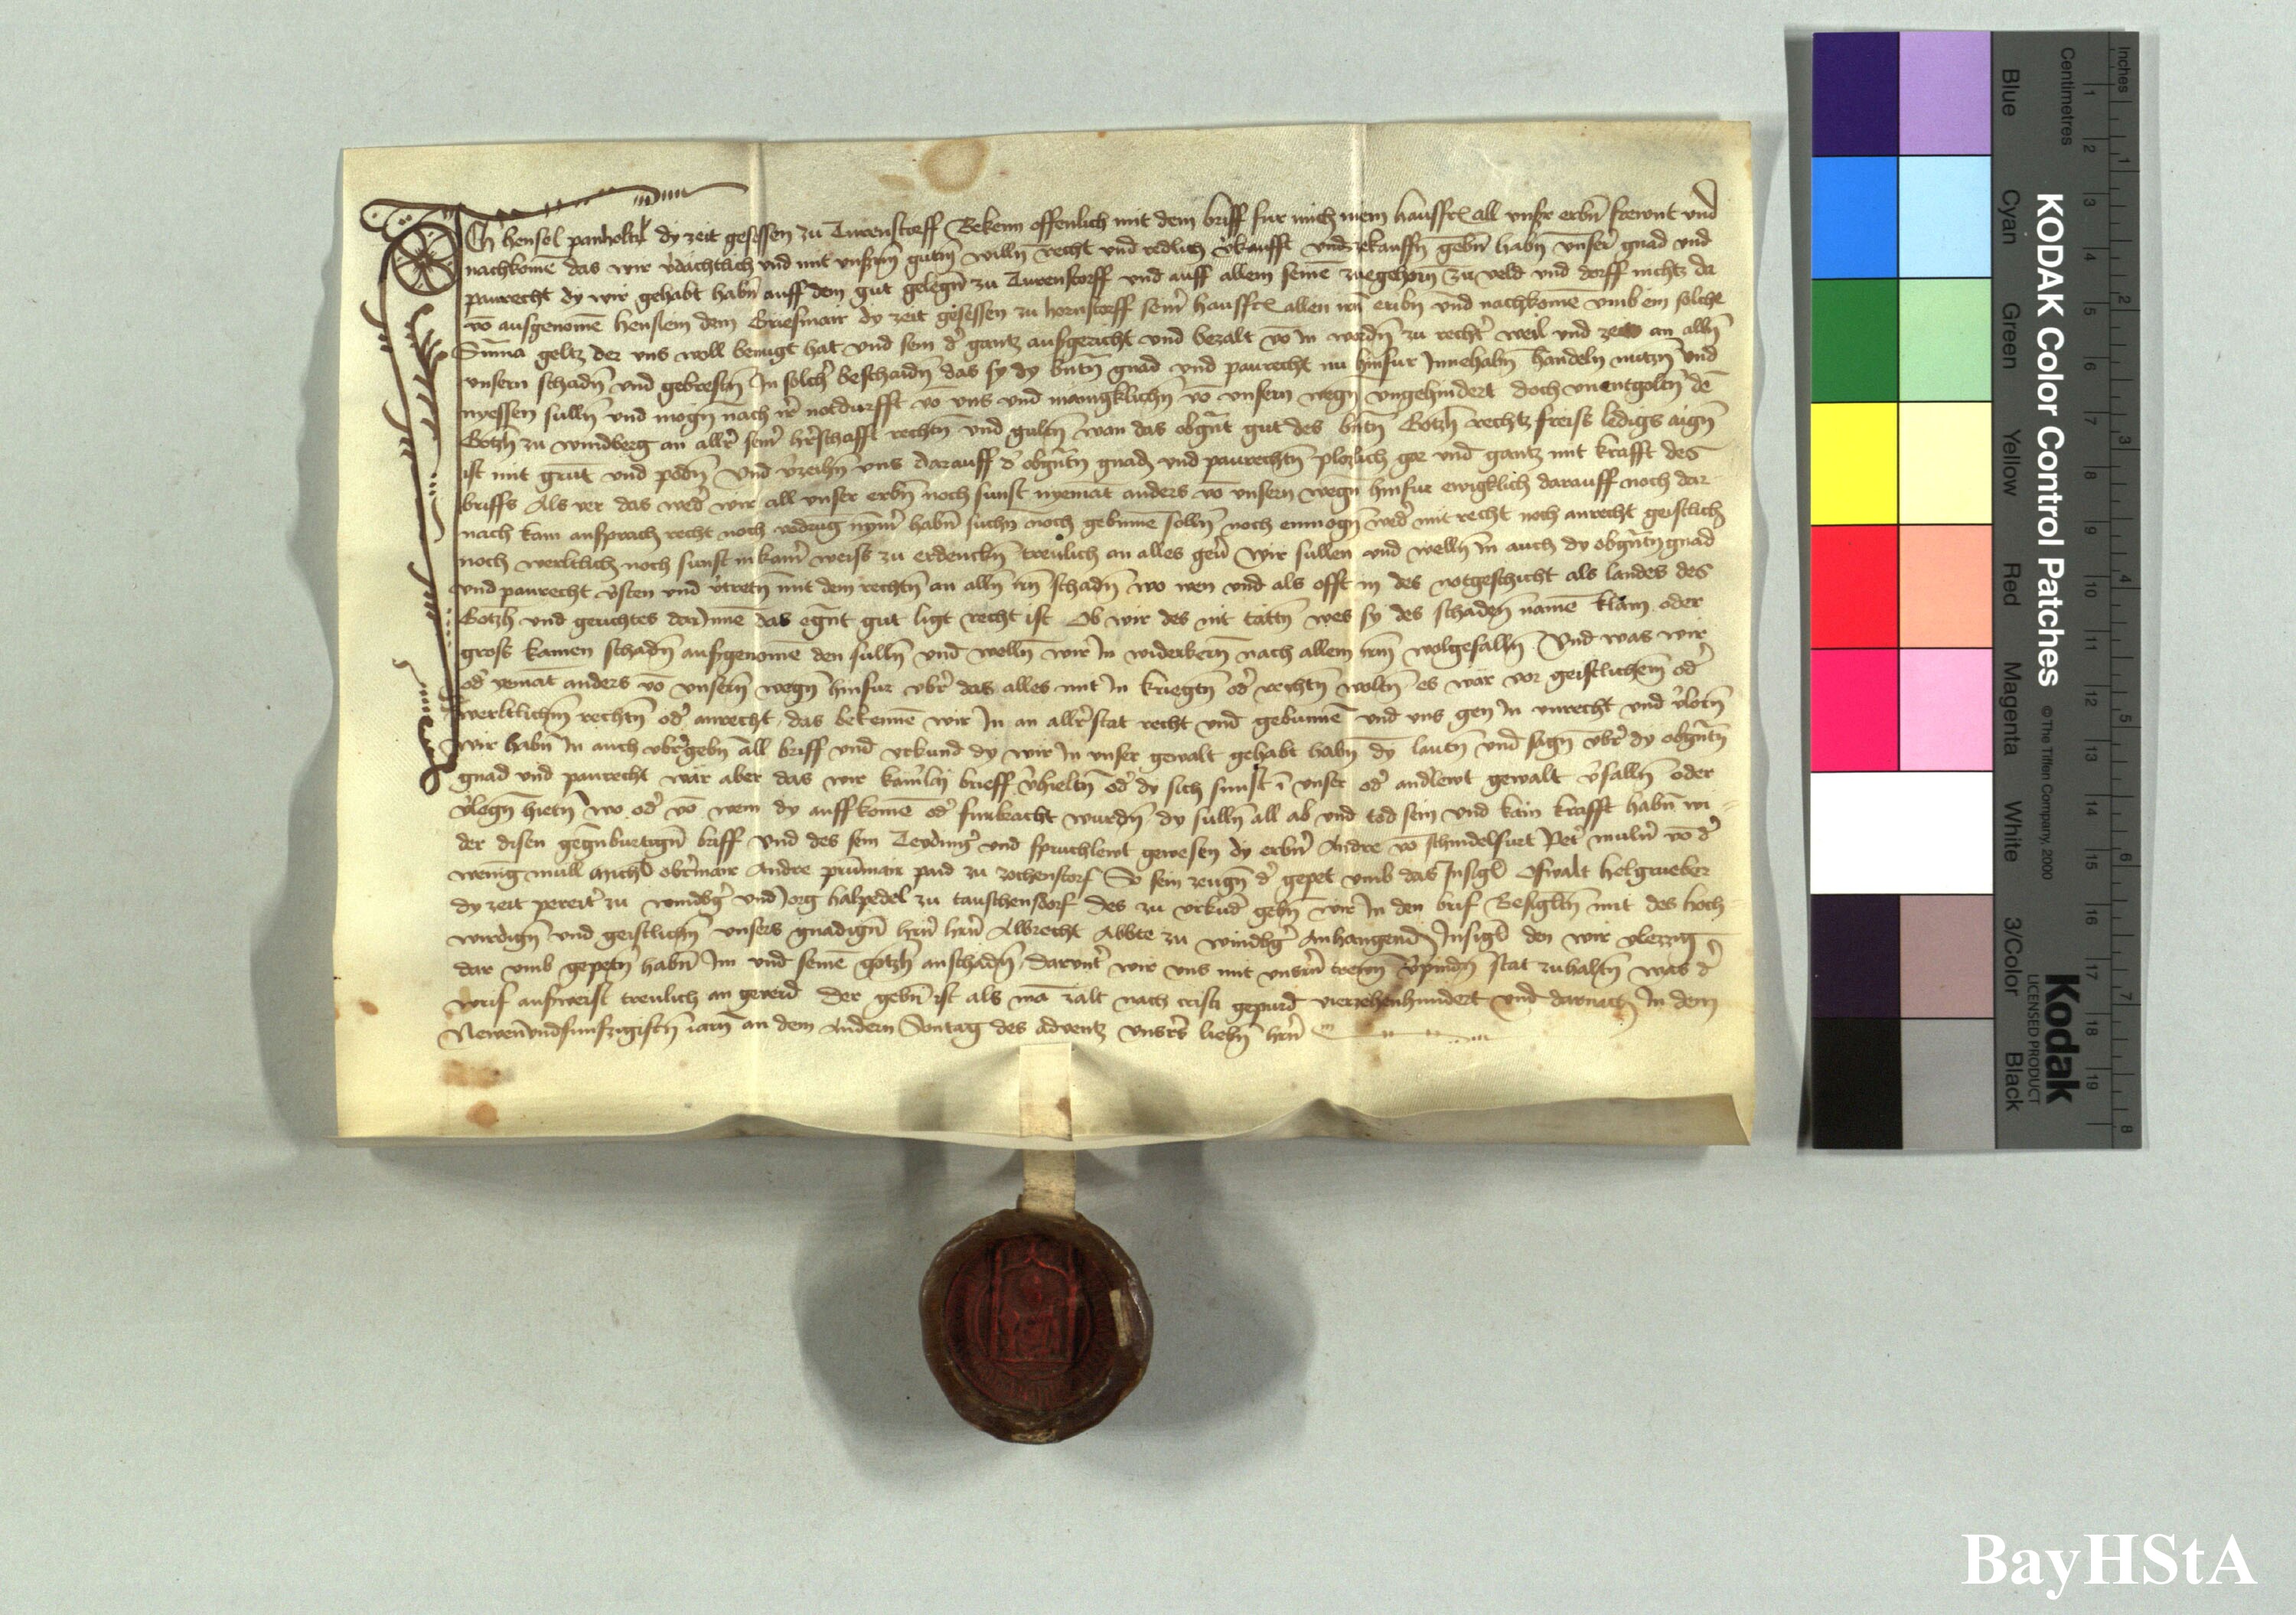 Ich hensel panholtz dy zeit gesessen zu Turenstorff Bekenn offenlich mit dem briff fur mich mein hausfr all unsr erbn̄ frewnt und
nachkomē das wir v̾dachtlich und mit unsrm̄ gutn̄ willn̄ recht und redlich v̾kaufft und zekauffn̄ gebn̄ habn̄ unser̾ gnad und
paurecht dy wir gehabt habn̄ auff dem gut gelegn̄ zu Turenstorff und auff allem seinē zuegehorn̄ zu veld und dorff nichtz da
vō ausgenomē henslein dem Griesmair dy zeit gesessen zu hornstorff sein̾ hausfr allen irn̄ eribn̄ und nachkomē umb ein solche
Sūma geltz der uns woll benugt hat und sein d̾ gantz ausgericht und bezalt vō in wordn̄ zu recht̾ weil und zeit an alln̄
unsern schadn̄ und gebrestn̄ In solch̾ beschaidn̄ das sy dy bn̄tn̄ gnad und paurecht nu hinfur Innehabn̄ handeln nutzn̄ und
nyessen sulln̄ und mogn̄ nach ir̾ notdurfft vō uns und mānigklichn̄ vō unsern wegn̄ ungehindert doch unentgoltn̄ dē
Gotzh̄ zu windberg an allr̾ sein̾ hr̾schafft rechtn̄ und gultn̄ wan das obgn̄t gut des bn̄tn̄ Gotzh̄ rechtz freiss ledigs aign̄
ist mit grunt und podn̄ Und v̾zeihn̄ uns darauff d̾ obgn̄tn̄ gnad und paurechtn̄ plozlich gar und gantz mit krafft des
briffs Als ver das wed̾ wir all unser erbn̄ noch sunst nyemāt anders vō unsern wegn̄ hinfur ewigklich darauff noch dar
nach kain ansprach recht noch vodrug nȳm̾ habn̄ suchn̄ noch gebinnē solln̄ noch enmogn̄ wed̾ mit recht noch anrecht geistlich
noch werltlich noch sunst in kain̾ weiss zu erdenckn̄ treulich an alles gev̾ Wir sullen und welln̄ in auch dy obgn̄tn̄ gnad
und paurecht v̾sten und v̾tretn̄ mit dem rechtn̄ an alln̄ irn̄ schadn̄ wo wen und als offt in des notgeschicht als landes des
Gotzh̄ und gerichtes darInnē das egn̄t gut ligt recht ist Ob wir des nit tattn̄ wes sy des schadn̄ namē klain oder
gross kainen schadn̄ ausgenomē den sulln̄ und welln̄ wir in widerkern̄ nach allem irm̄ wolgefalln̄ Und was wir
od̾ yemāt anders vō unsern̄ wegn̄ hinfur ub̾ das alles mit in kriegtn̄ od̾ rechtn̄ woltn̄ es war vor geistlichem̄ od̾
werltlichm̄ rechtn̄ od̾ anrecht das bekennē wir In an allr̾stat recht und gebunnē und uns gen in unrecht und v̾lorn̄
wir habn̄ in auch ubr̾gebn̄ all briff und urkund dy wir in unser gewalt gehabt habn̄ dy lautn̄ und sagn̄ ubr̾ dy obgn̄tn̄
gnad und paurecht war aber das wir kainr̾lay brieff v̾hieltn̄ od̾ dy sich sunst ī unser od̾ andr̾lewt gewalt v̾falln̄ oder
v̾legn̄ hietn̄ wo od̾ vō wem dy auffkomē od̾ furbracht wurdn̄ dy sulln̄ all ab und tod sein und kain krafft habn̄ wi
der disen gegn̄burtign̄ briff Und des sein Teyding̾ und spruchlewt gewesen dy erbn̾ Andre vō schindelfurt Pet̾ muln̾ vō d̾
wenig mull michl̄ obr̾mair Andre prunmair paid zu rochenstorf So sein zeugn̄ d̾ gepet umb das Insigl̄ Oswalt helgrueber
dy zeit pereit̾ zu windbg̾ und Jorg halpedel zu tauschensdorf des zu urkūd gebn̄ wir in den brif Besigltn̄ mit des hoch
wirdign̄ und geistlichn̄ unsers gnadign̄ hrn̄ hrn̄ Albrecht Abbte zu windbg̾ Anhangend Insigl̄ den wir vleizzig
dar umb gepetn̄ habn̄ Im und seinē gotzh̄ anschadn̄ darunt̾ wir uns mit unsrn̄ trewn̄ v̾pindn̄ stat zuhaltn̄ was d̾
brif ausweist treulich an geverd Der gebn̄ ist als mā zalt nach cristi gepurd vierzehenhundert und darnach In dem
Newenūndfunfzigistn̄ iarn̄ an dem Andern Sontag des Adventz unsrs̾ liebn̄ hrn̄
KODAK Color Control Patches
© The Tiffen Company, 2000
Kodak
LICENSED PRODUCT
Blue Cyan Green Yellow Red Magenta White 3/Color Black
Inches 1 2 3 4 5 6 7 8
Centimetres 1 2 3 4 5 6 7 8 9 10 11 12 13 14 15 16 17 18 19
BayHStA